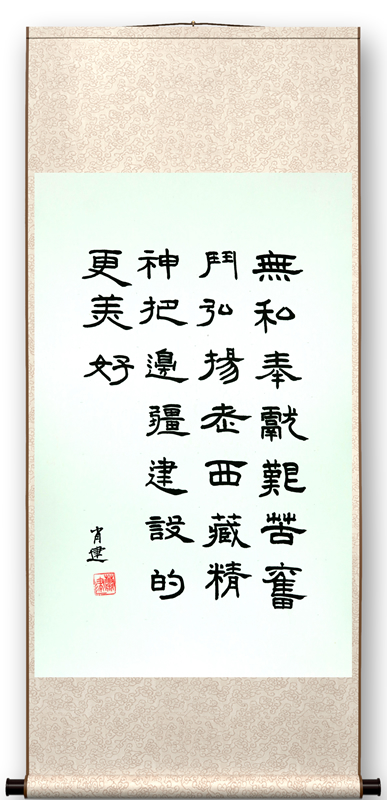 無私奉獻艱苦奮
鬥弘揚老西藏精
神把邊疆建設的
更美好
肖建